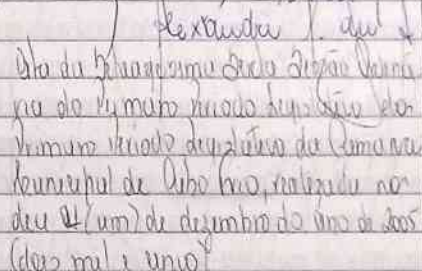 Alexandre
Ata da Sexta Sessão Ordiná
ria do Primeiro Período Legislativo do
Primeiro Período Legislativo da Camara
Municipal de Cabo Frio, realizada no
dia 01 (um) de dezembro do ano de 2005
(dois mil e cinco)